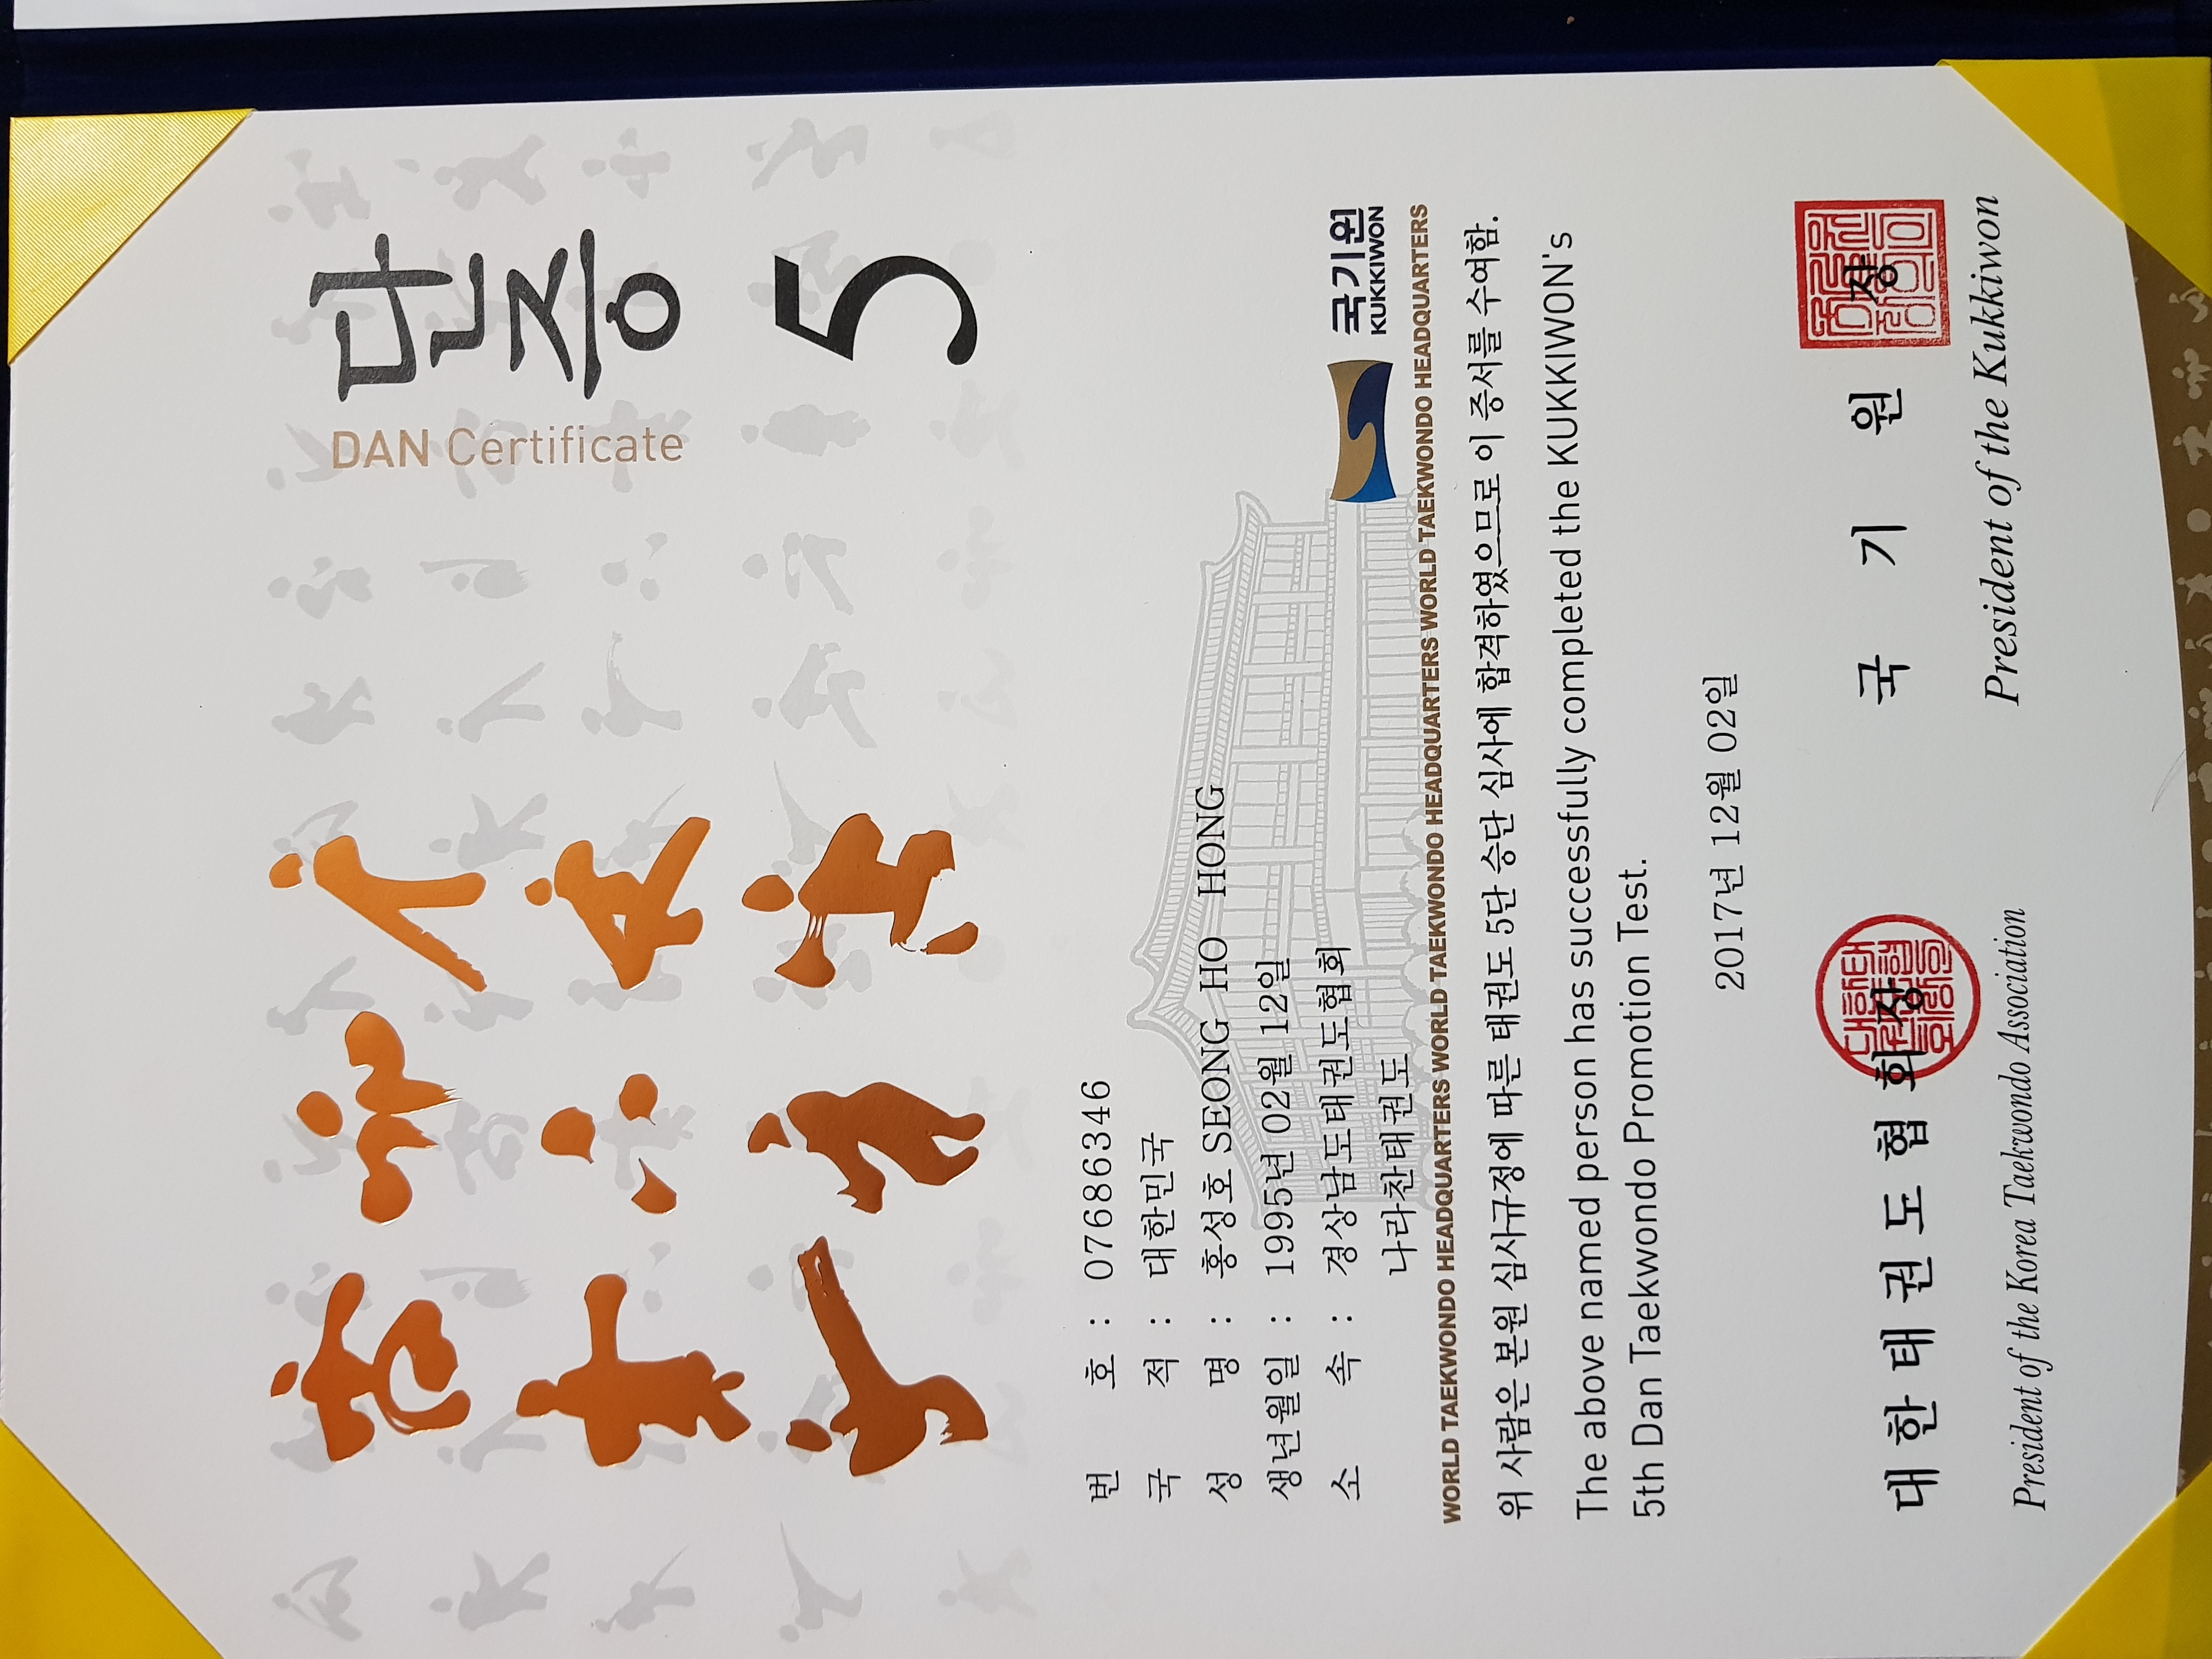 단증
DAN Certificate
5
번 호 : 07686346
국 적 : 대한민국
성 명 : 홍성호 SEONG HO HONG
생년월일 : 1995년 02월 12일
소 속 : 경상남도태권도협회
나라찬태권도
국기원
KUKKIWON
WORLD TAEKWONDO HEADQUARTERS WORLD TAEKWONDO HEADQUARTERS WORLD TAEKWONDO HEADQUARTERS WORLD TAEKWONDO HEADQUARTERS WORLD TAEKWONDO HEADQUARTERS
위 사람은 본원 심사규정에 따른 태권도 5단 승단 심사에 합격하였으므로 이 증서를 수여함.
The above named person has successfully completed the KUKKIWON's
5th Dan Taekwondo Promotion Test.
2017년 12월 02일
대한태권도협회장 국기원장
President of the Korea Taekwondo Association President of the Kukkiwon